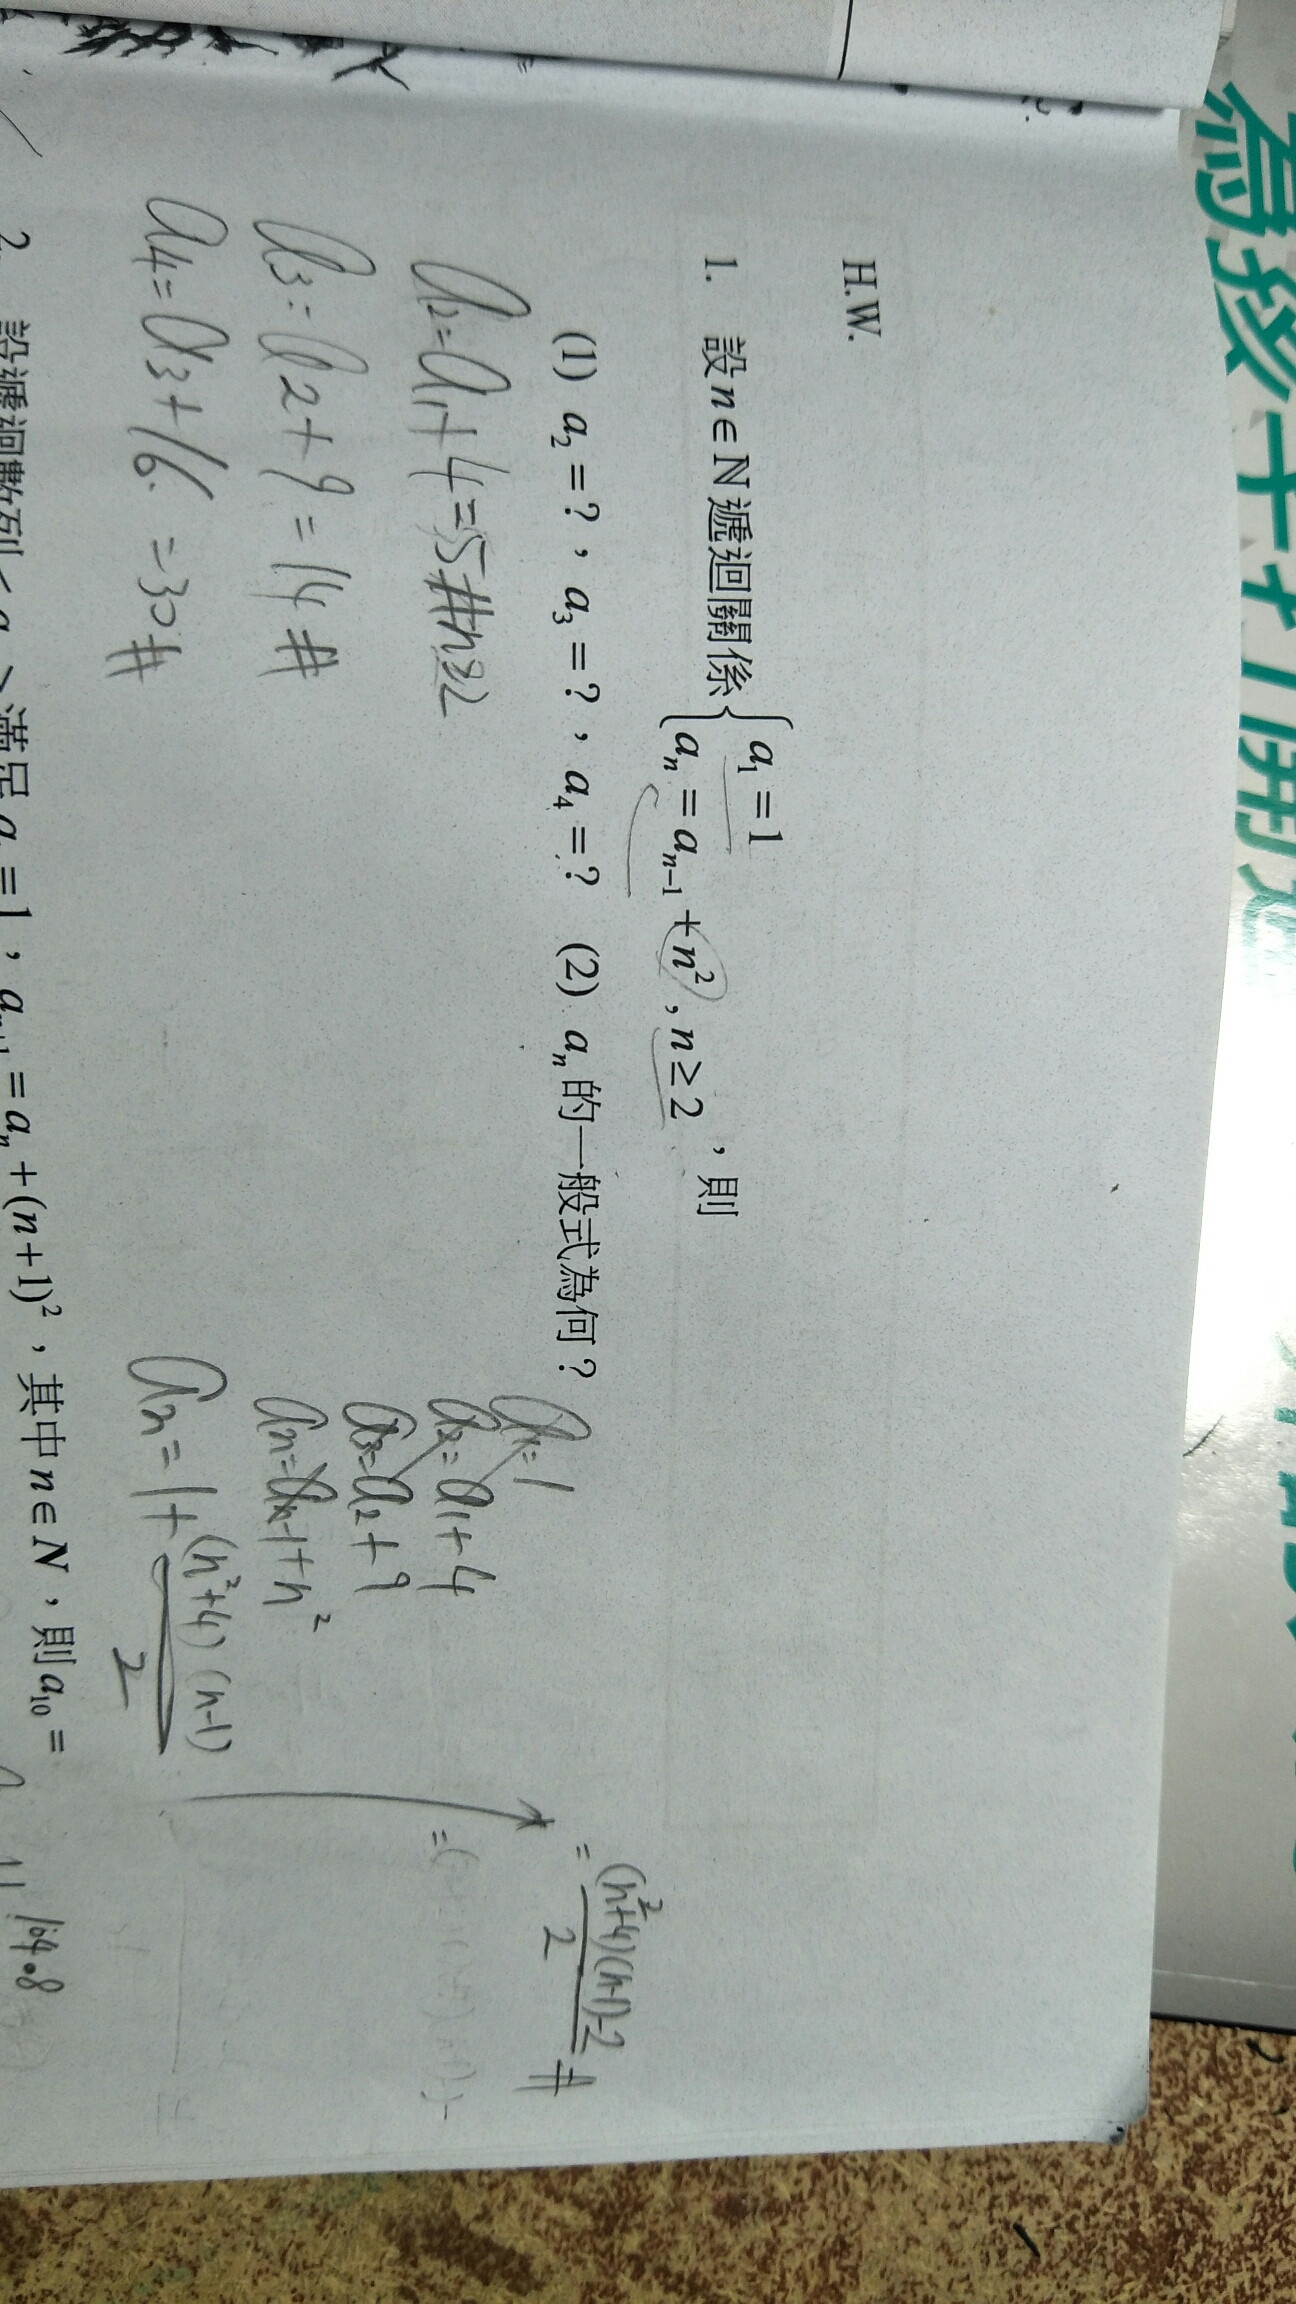 H.W.
1. 設n∈N遞迴關係{a₁=1
aₙ=aₙ₋₁+n², n≥2，則
(1) a₂=?，a₃=?，a₄=? (2) aₙ的一般式為何？
a₂=a₁+4=5# n≥2
a₃=a₂+9=14#
a₄=a₃+16=30#
a₁=1
a₂=a₁+4
a₃=a₂+9
aₙ=aₙ₋₁+n²
aₙ=1+(n²+4)(n-1)/2
=(n²+4)(n-1)-2/2 #
2. 設遞迴數列<aₙ>滿足a₁=1，aₙ₊₁=aₙ+(n+1)²，其中n∈N，則a₁₀=